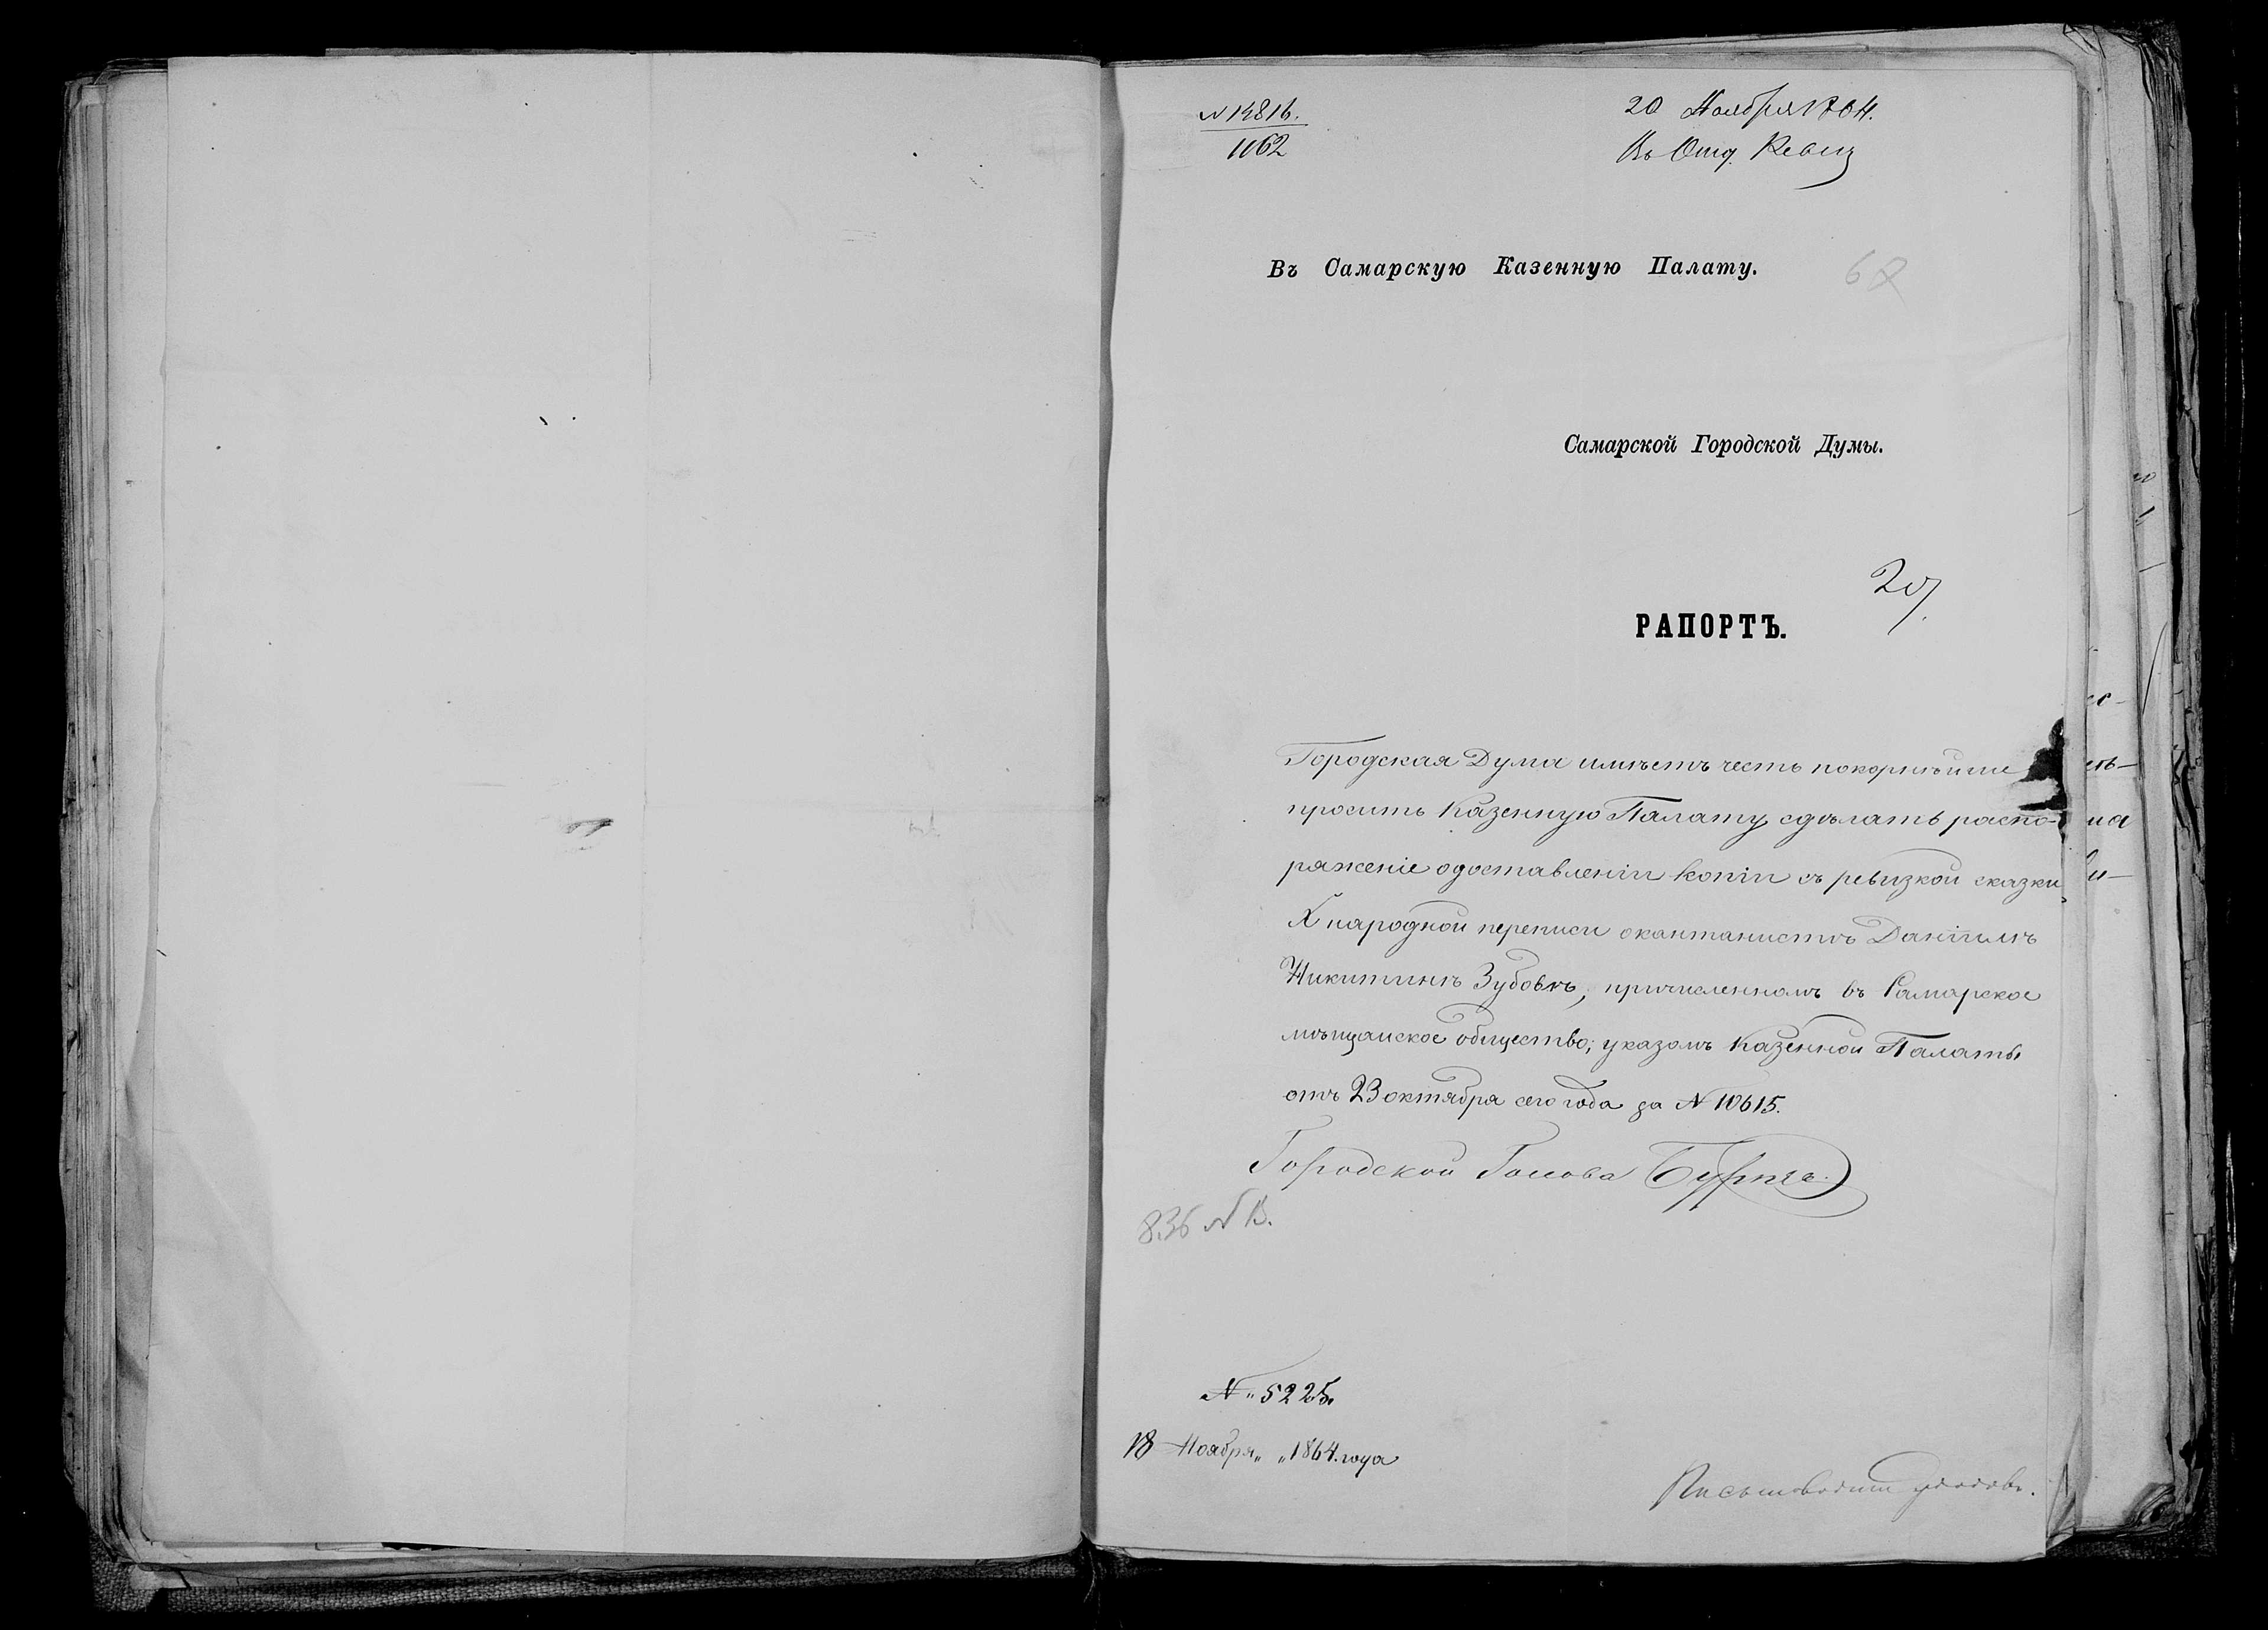 N 14816.
1062
20 Ноября 1864.
Въ Отд. Ревиз
Въ Самарскую Казенную Палату.
62
Самарской Городской Думы.
РАПОРТЪ.
Городская Дума имѣетъ честь покорнѣйше
просить Казенную Палату сдѣлать распо-
ряженіе о доставленіи копіи съ ревизкой сказки
X народной переписи о кантанистѣ Даніилѣ
Никитинѣ Зубовѣ, причисленномъ въ Самарское
мѣщанское общество, указомъ Казенной Палаты
отъ 23 октября сего года за N 10615.
Городской Голова
836 NВ.
N 5225.
18 Ноября 1864. года